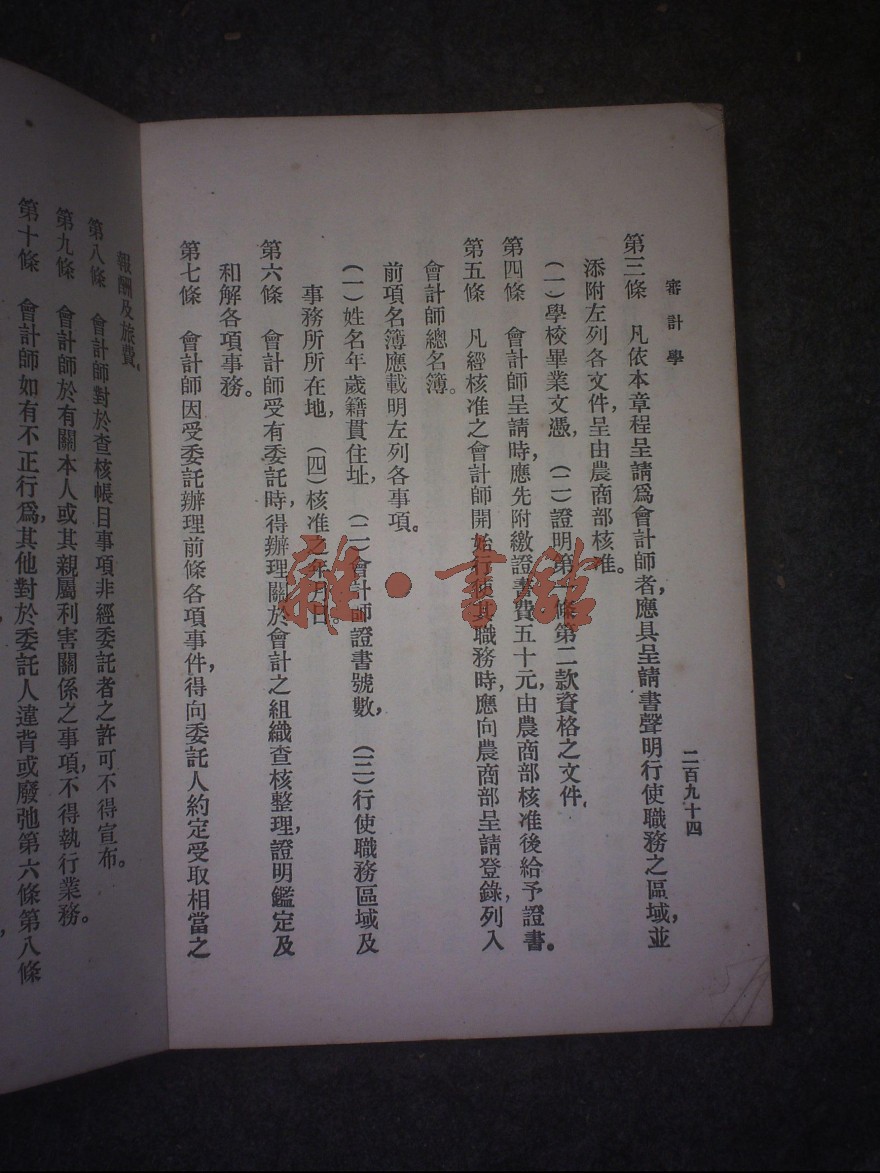 審計學
二百九十四
第三條　凡依本章程呈請爲會計師者，應具呈請書聲明行使職務之區域，並
添附左列各文件，呈由農商部核准。
（一）學校畢業文憑，（二）證明第一條第二款資格之文件，
第四條　會計師呈請時，應先附繳證書費五十元，由農商部核准後給予證書。
第五條　凡經核准之會計師開始行使其職務時，應向農商部呈請登錄，列入
會計師總名簿。
前項名簿應載明左列各事項。
（一）姓名年歲籍貫住址，（二）會計師證書號數，（三）行使職務區域及
事務所所在地，（四）核准之年月日。
第六條　會計師受有委託時，得辦理關於會計之組織查核整理，證明鑑定及
和解各項事務。
第七條　會計師因受委託辦理前條各項事件，得向委託人約定受取相當之
報酬及旅費，
第八條　會計師對於查核帳目事項非經委託者之許可不得宣布。
第九條　會計師於有關本人或其親屬利害關係之事項，不得執行業務。
第十條　會計師如有不正行爲，其他對於委託人違背或廢弛第六條第八條
雜·書館